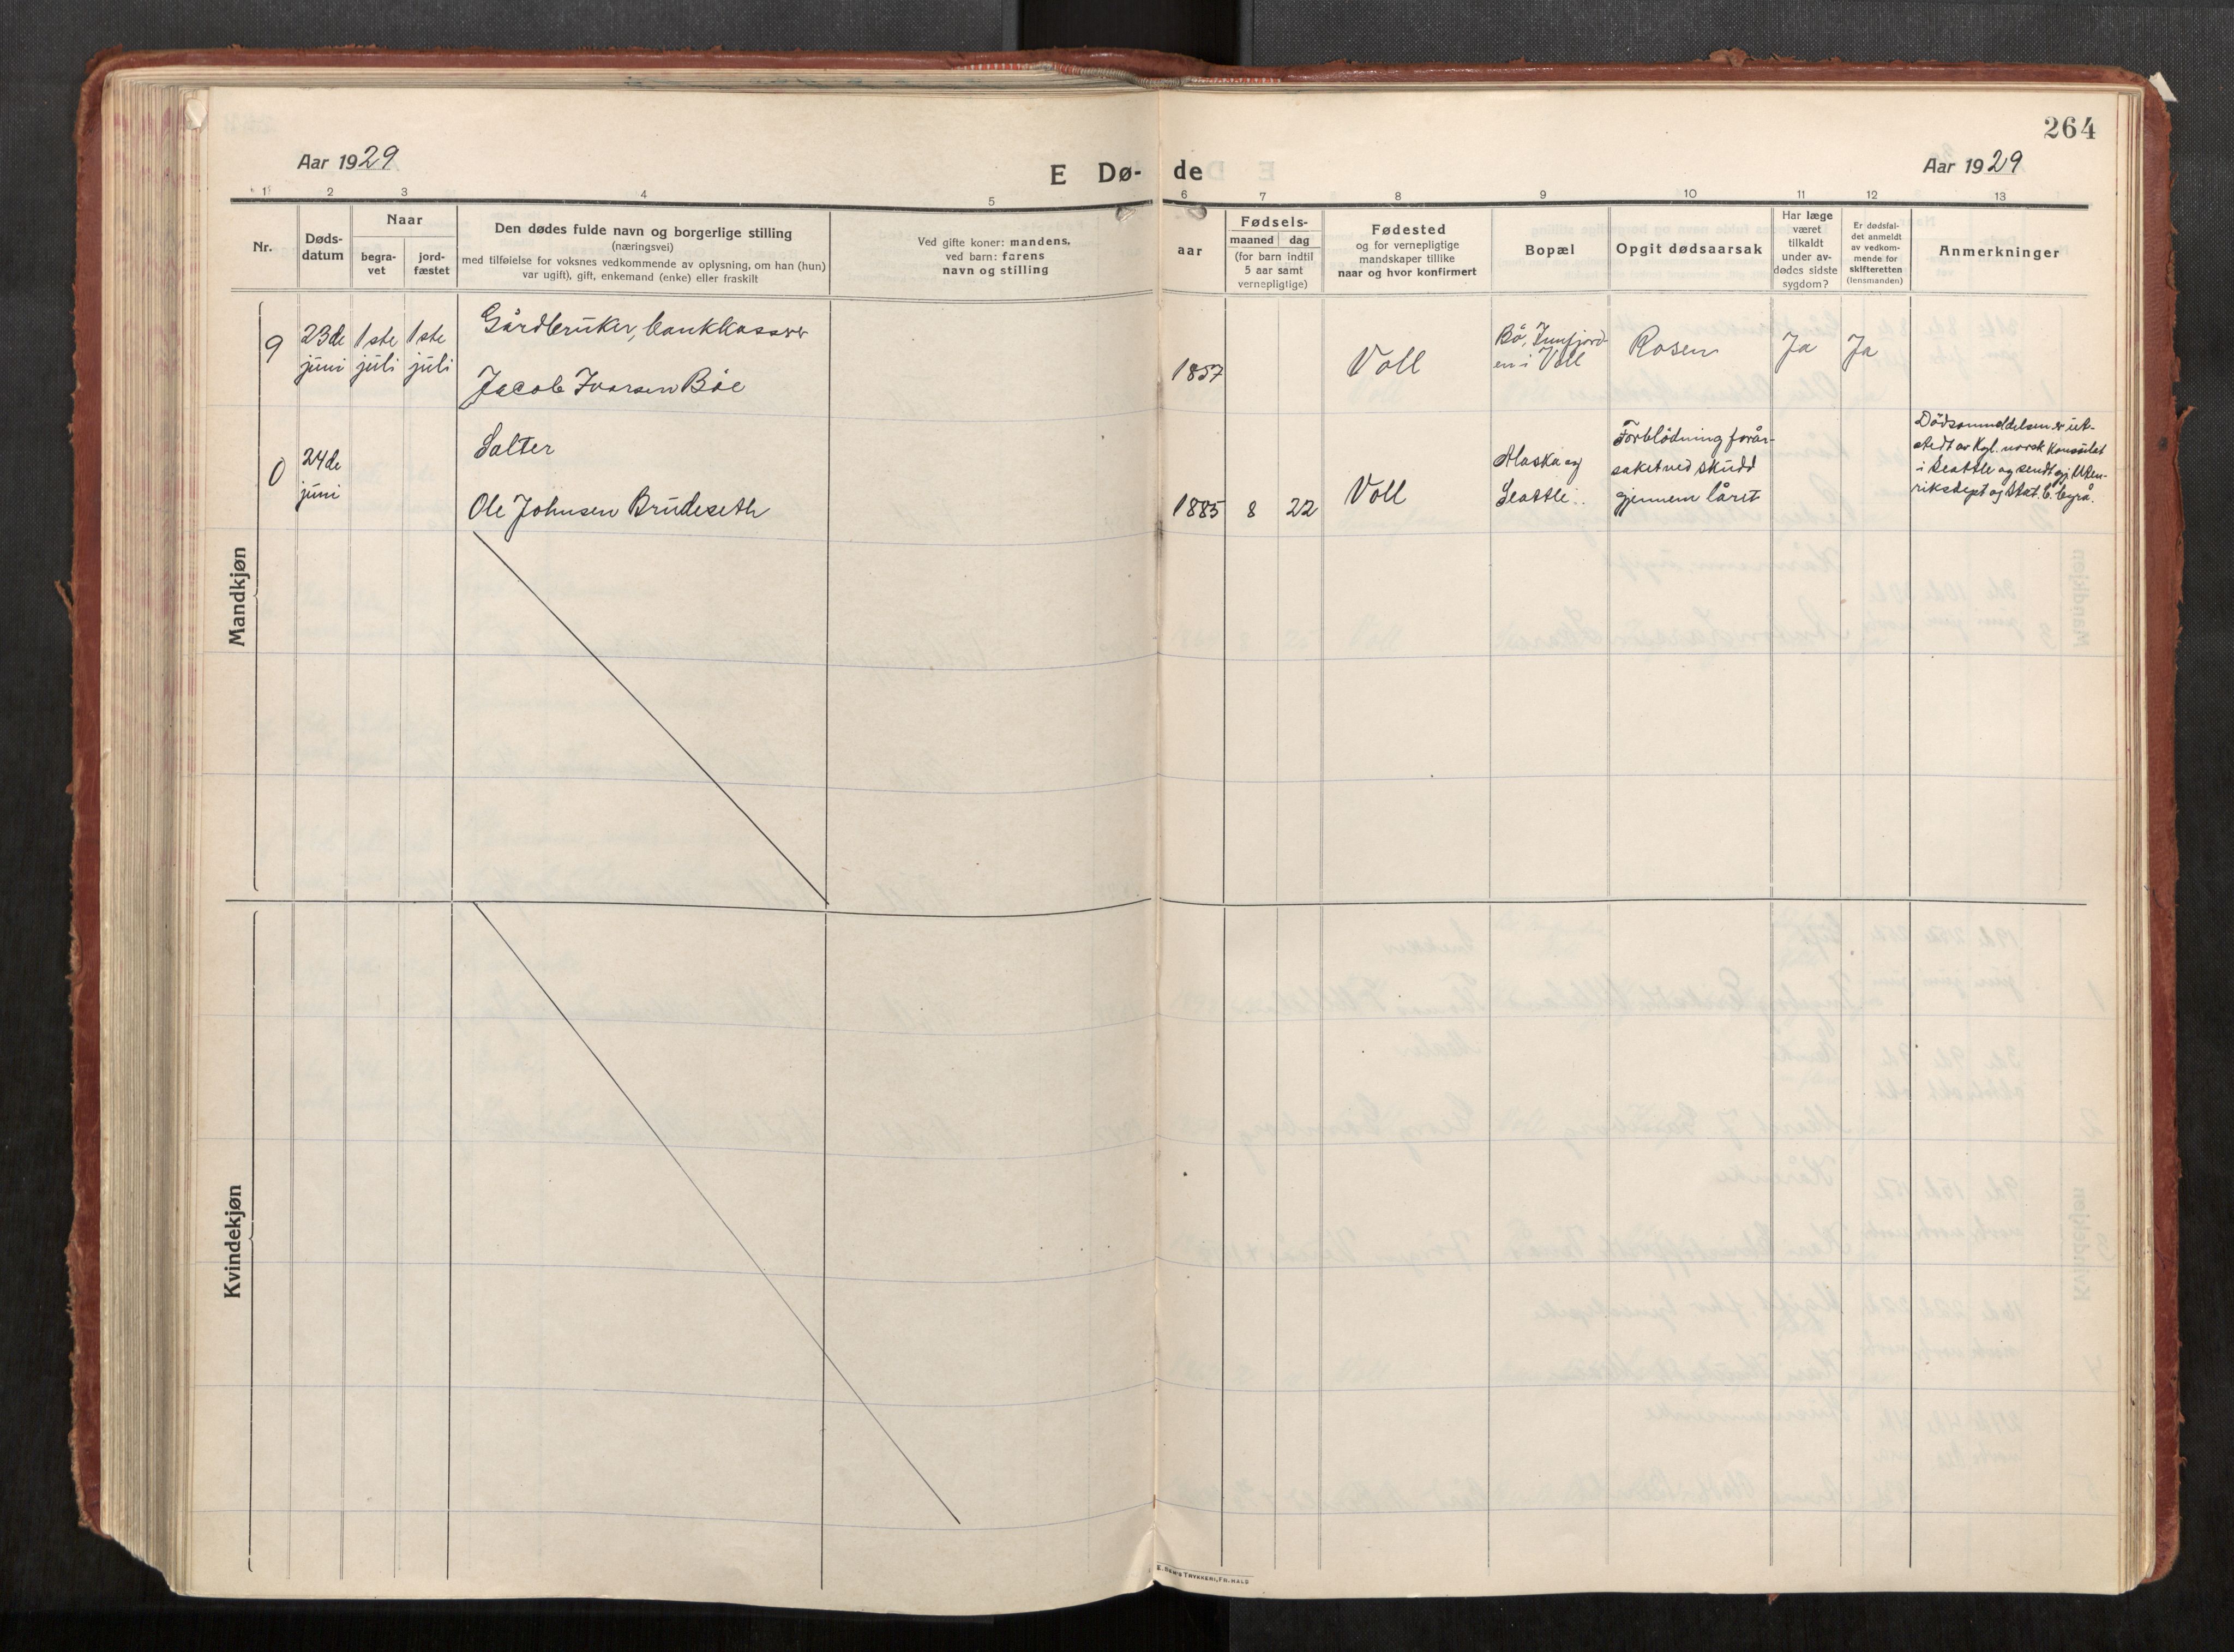 264
Aar 1929
E Dø-
de
Aar 1929
1 2 3 4 5 6 7 8 9 10 11 12 13
Nr.
Døds-
datum
Naar
begra-
vet
jord-
fæstet
Den dødes fulde navn og borgerlige stilling
(næringsvei)
med tilføielse for voksnes vedkommende av oplysning, om han (hun)
var ugift), gift, enkemand (enke) eller fraskilt
Ved gifte koner: mandens,
ved barn: farens
navn og stilling
aar
Fødsels-
maaned dag
(for barn indtil
5 aar samt
vernepligtige)
Fødested
og for vernepligtige
mandskaper tillike
naar og hvor konfirmert
Bopæl
Opgit dødsaarsak
Har læge
været
tilkaldt
under av-
dødes sidste
sygdom?
Er dødsfal-
det anmeldt
av vedkom-
mende for
skifteretten
(lensmanden)
Anmerkninger
Mandkjøn
9
23de
juni
1ste
juli
1ste
juli
Gårdbruker, bankkasserer
Jacob Ivarsen Böe
1857
Voll
Bö, Innfjord-
en i Voll
Rosen
Ja
Ja
0
24de
juni
Salter
Ole Johnsen Brudeseth
1885
8
22
Voll
Alaska og
Seattle
Forblödning forår-
saket ved skudd
gjennem låret
Dödsanmeldelsen er ut-
stedt av Kgl. norsk Konsulat
i Seattle og sendt gj. Uten-
riksdept og Stat. C. byrå.
Kvindekjøn
E. SEM'S TRYKKERI, FR.HALD